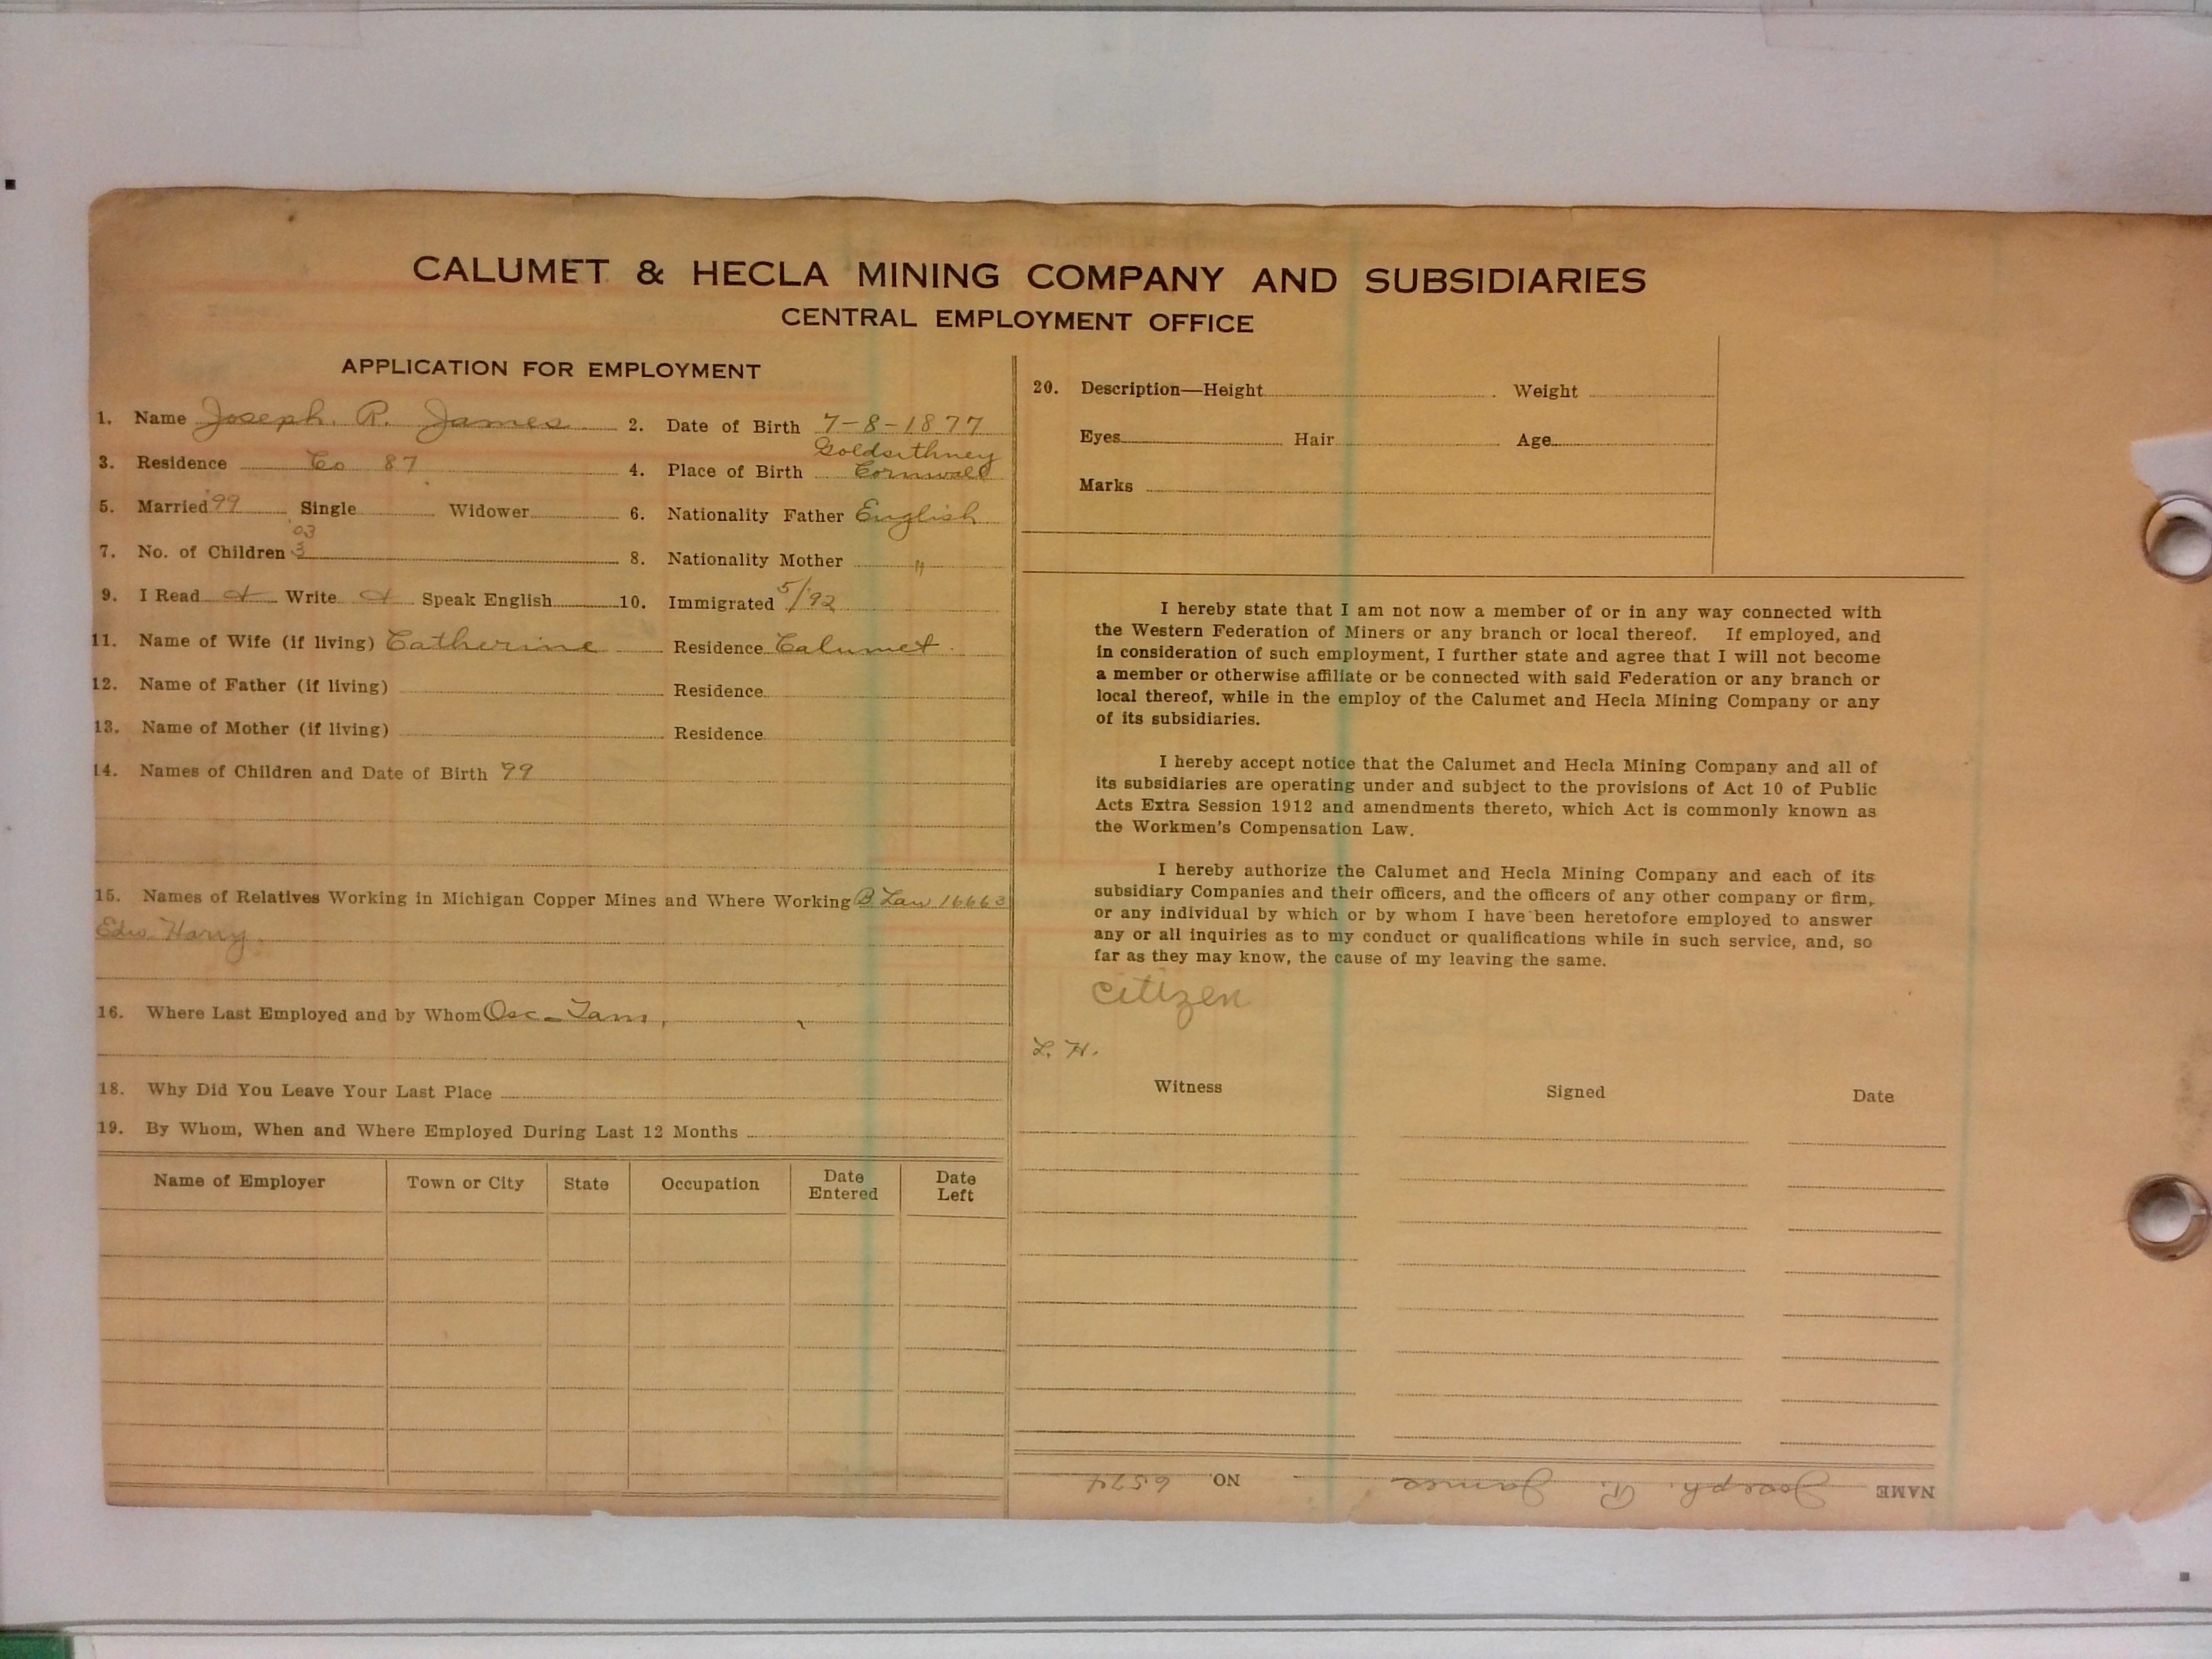 CALUMET & HECLA MINING COMPANY AND SUBSIDIARIES
CENTRAL EMPLOYMENT OFFICE
APPLICATION FOR EMPLOYMENT
1. Name Joseph. R. James 2. Date of Birth 7-8-1877
3. Residence Co 87 4. Place of Birth Goldsithney Cornwall
5. Married '99 Single Widower 6. Nationality Father English
7. No. of Children '03 3 8. Nationality Mother "
9. I Read Write Speak English 10. Immigrated 5/'92
11. Name of Wife (if living) Catherine Residence Calumet.
12. Name of Father (if living) Residence
13. Name of Mother (if living) Residence
14. Names of Children and Date of Birth '99
15. Names of Relatives Working in Michigan Copper Mines and Where Working B Law 16663
Edw. Harry.
16. Where Last Employed and by Whom Osc - Tam,
18. Why Did You Leave Your Last Place
19. By Whom, When and Where Employed During Last 12 Months
Name of Employer Town or City State Occupation Date Entered Date Left
20. Description—Height Weight
Eyes Hair Age
Marks
I hereby state that I am not now a member of or in any way connected with
the Western Federation of Miners or any branch or local thereof. If employed, and
in consideration of such employment, I further state and agree that I will not become
a member or otherwise affiliate or be connected with said Federation or any branch or
local thereof, while in the employ of the Calumet and Hecla Mining Company or any
of its subsidiaries.
I hereby accept notice that the Calumet and Hecla Mining Company and all of
its subsidiaries are operating under and subject to the provisions of Act 10 of Public
Acts Extra Session 1912 and amendments thereto, which Act is commonly known as
the Workmen's Compensation Law.
I hereby authorize the Calumet and Hecla Mining Company and each of its
subsidiary Companies and their officers, and the officers of any other company or firm,
or any individual by which or by whom I have been heretofore employed to answer
any or all inquiries as to my conduct or qualifications while in such service, and, so
far as they may know, the cause of my leaving the same.
citizen
L. H.
Witness Signed Date
NAME Joseph. R. James NO. 6574